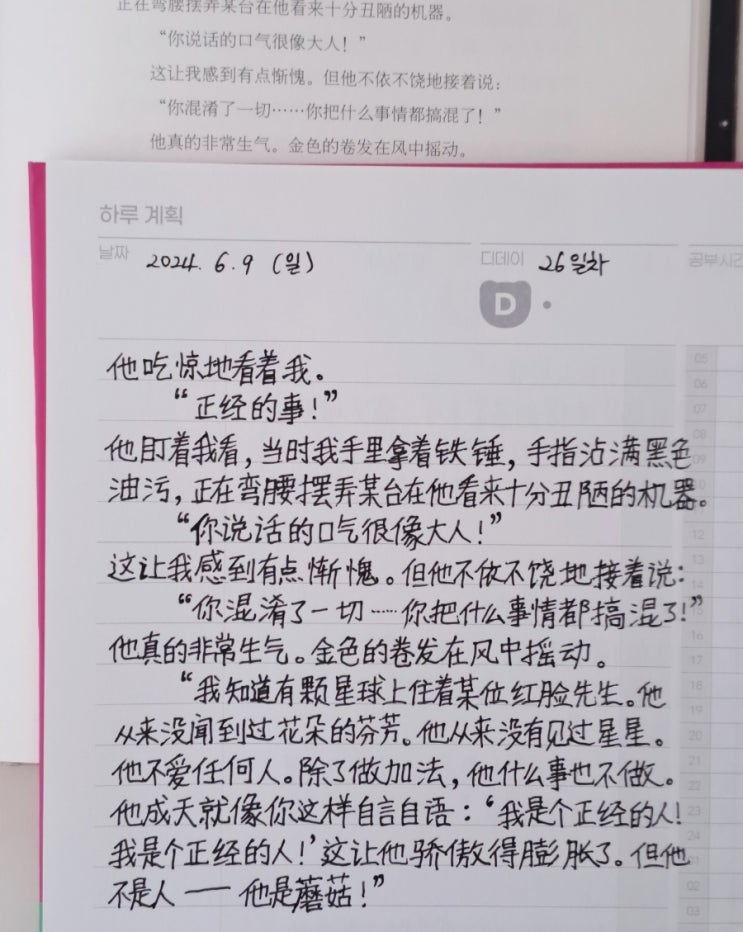 正在弯腰摆弄某台在他看来十分丑陋的机器。
“你说话的口气很像大人！”
这让我感到有点惭愧。但他不依不饶地接着说：
“你混淆了一切……你把什么事情都搞混了！”
他真的非常生气。金色的卷发在风中摇动。
하루 계획
날짜 2024. 6. 9 (일) 디데이 26일차 공부시간
D
他吃惊地看着我。
“正经的事！”
他盯着我看，当时我手里拿着铁锤，手指沾满黑色
油污，正在弯腰摆弄某台在他看来十分丑陋的机器。
“你说话的口气很像大人！”
这让我感到有点惭愧。但他不依不饶地接着说：
“你混淆了一切……你把什么事情都搞混了！”
他真的非常生气。金色的卷发在风中摇动。
“我知道有颗星球上住着某位红脸先生。他
从来没闻到过花朵的芬芳。他从来没有见过星星。
他不爱任何人。除了做加法，他什么事也不做。
他成天就像你这样自言自语：‘我是个正经的人！
我是个正经的人！’这让他骄傲得膨胀了。但他
不是人——他是蘑菇！”
05
06
07
08
09
12
13
14
15
16
17
18
19
20
21
22
23
24
01
02
03